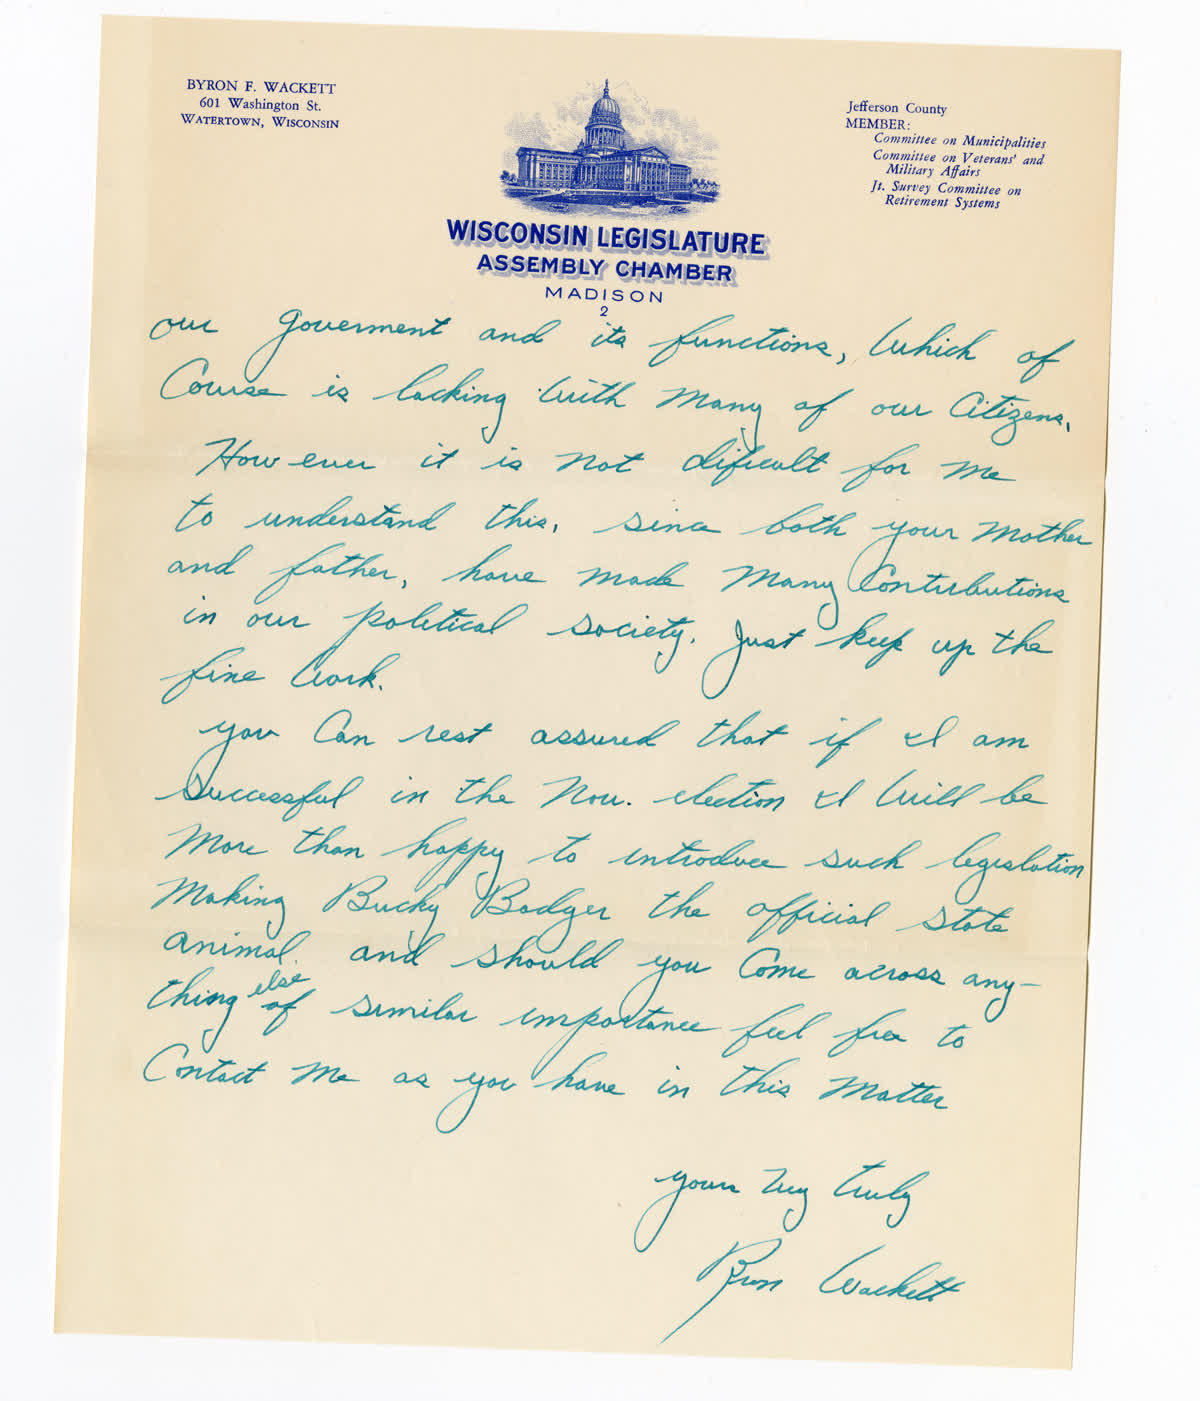 BYRON F. WACKETT
601 Washington St.
WATERTOWN, WISCONSIN
Jefferson County
MEMBER:
Committee on Municipalities
Committee on Veterans' and
Military Affairs
Jt. Survey Committee on
Retirement Systems
WISCONSIN LEGISLATURE
ASSEMBLY CHAMBER
MADISON
2
our Goverment and its functions, Which of
Course is lacking With Many of our Citizens.
However it is not dificult for me
to understand this, since both your Mother
and father, have made Many Contributions
in our political society. Just keep up the
fine Work.
you Can rest assured that if I am
successful in the Nov. election I Will be
More than happy to introduce such legislation
Making Bucky Badger the official state
animal. and should you Come across any-
thing else of similar importance feel free to
Contact Me as you have in this Matter
yours very truly
Byron Wackett